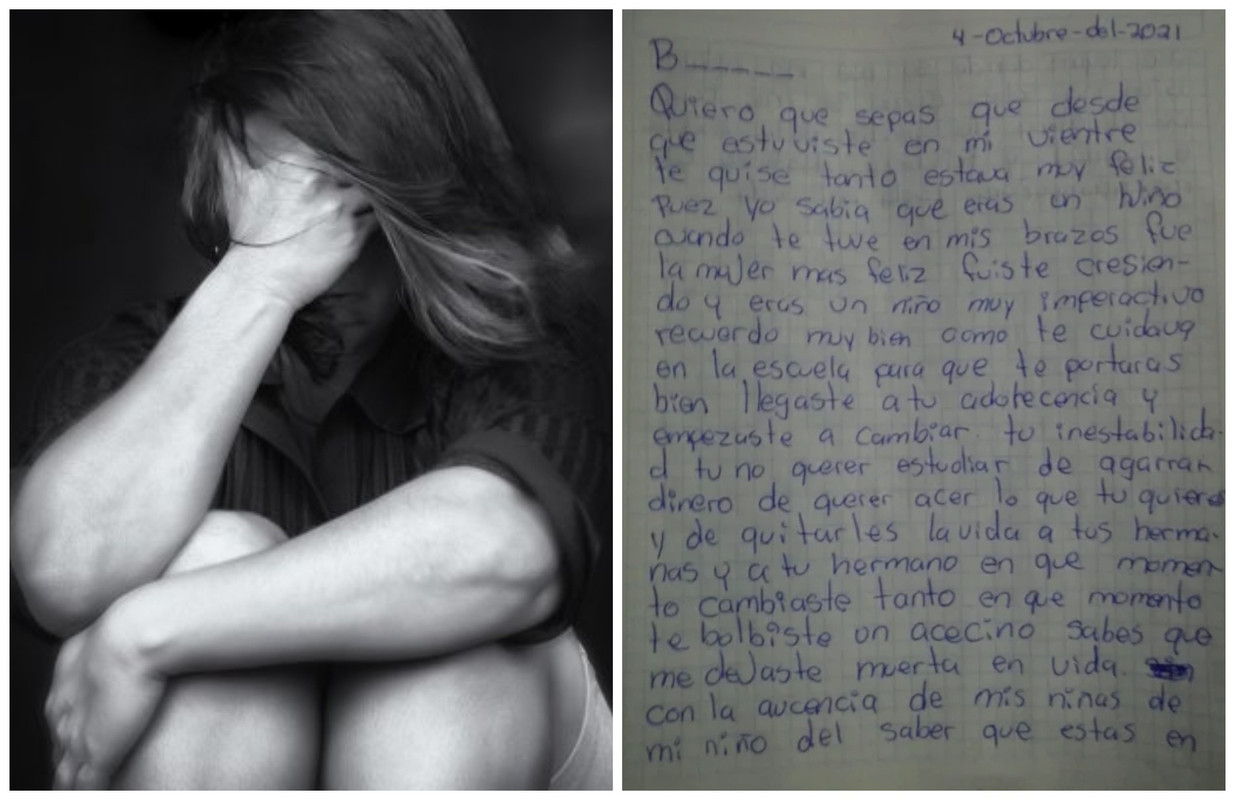 4-Octubre-del-2021
B______
Quiero que sepas que desde
que estuviste en mi vientre
te quise tanto estava muy feliz
Puez yo sabia que eras un Niño
cuando te tuve en mis brazos fue
la mujer mas feliz fuiste cresien-
do y eras un niño muy imperactivo
recuerdo muy bien como te cuidava
en la escuela para que te portaras
bien llegaste a tu adolecencia y
empezaste a cambiar. tu inestabilida-
d tu no querer estudiar de agarrar
dinero de querer acer lo que tu quieres
y de quitarles la vida a tus herma-
nas y a tu hermano en que momen
to cambiaste tanto en que momento
te bolbiste un acecino sabes que
me dejaste muerta en vida.
con la aucencia de mis niñas de
mi niño del saber que estas en